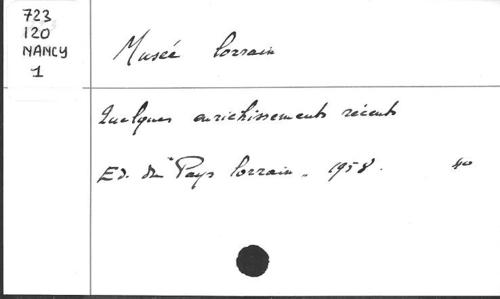 723
120
NANCY
1
Musée lorrain
Quelques enrichissements récents
Ed. du "Pays lorrain". 1958.